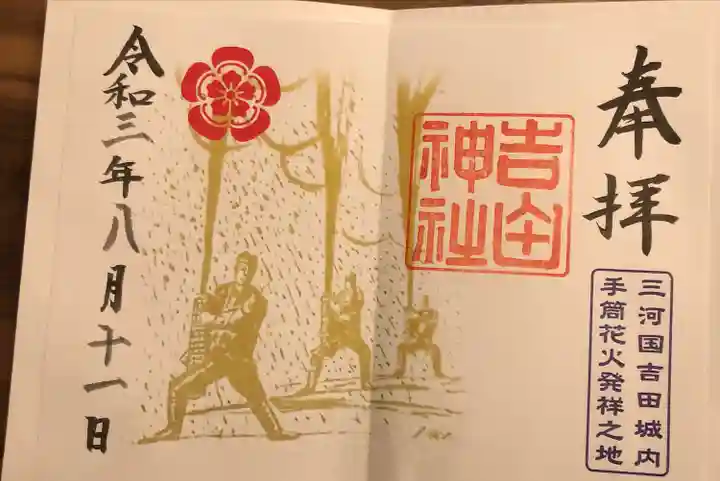 奉拝
三河国吉田城内
手筒花火発祥之地
吉田
神社
令和三年八月十一日